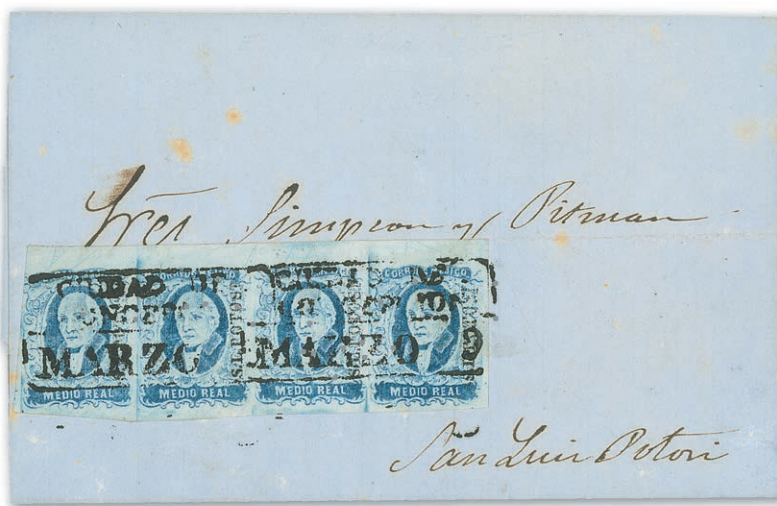 Sres Simpson y Pitman
CORREOS MEXICO
CIUDAD DE
MARZO MARZO
MEDIO REAL MEDIO REAL MEDIO REAL MEDIO REAL
San Luis Potosi